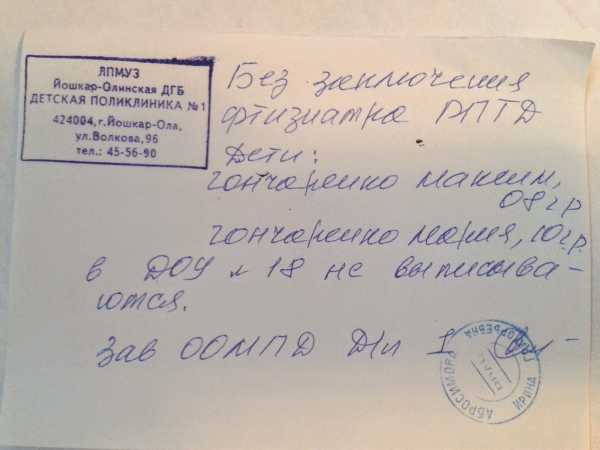 ЛПМУЗ
Йошкар-Олинская ДГБ
ДЕТСКАЯ ПОЛИКЛИНИКА №1
424004, г.Йошкар-Ола,
ул.Волкова,96
тел.: 45-56-90
Без заключения
фтизиатра РПТД
Дети:
гончаренко максим,
08 г.р
гончаренко мария, 10 г.р.
в ДОУ № 18 не выписыва-
ются.
Зав ООМПД Д/п I
АБРОСИМОВА ИРИНА ЮРЬЕВНА